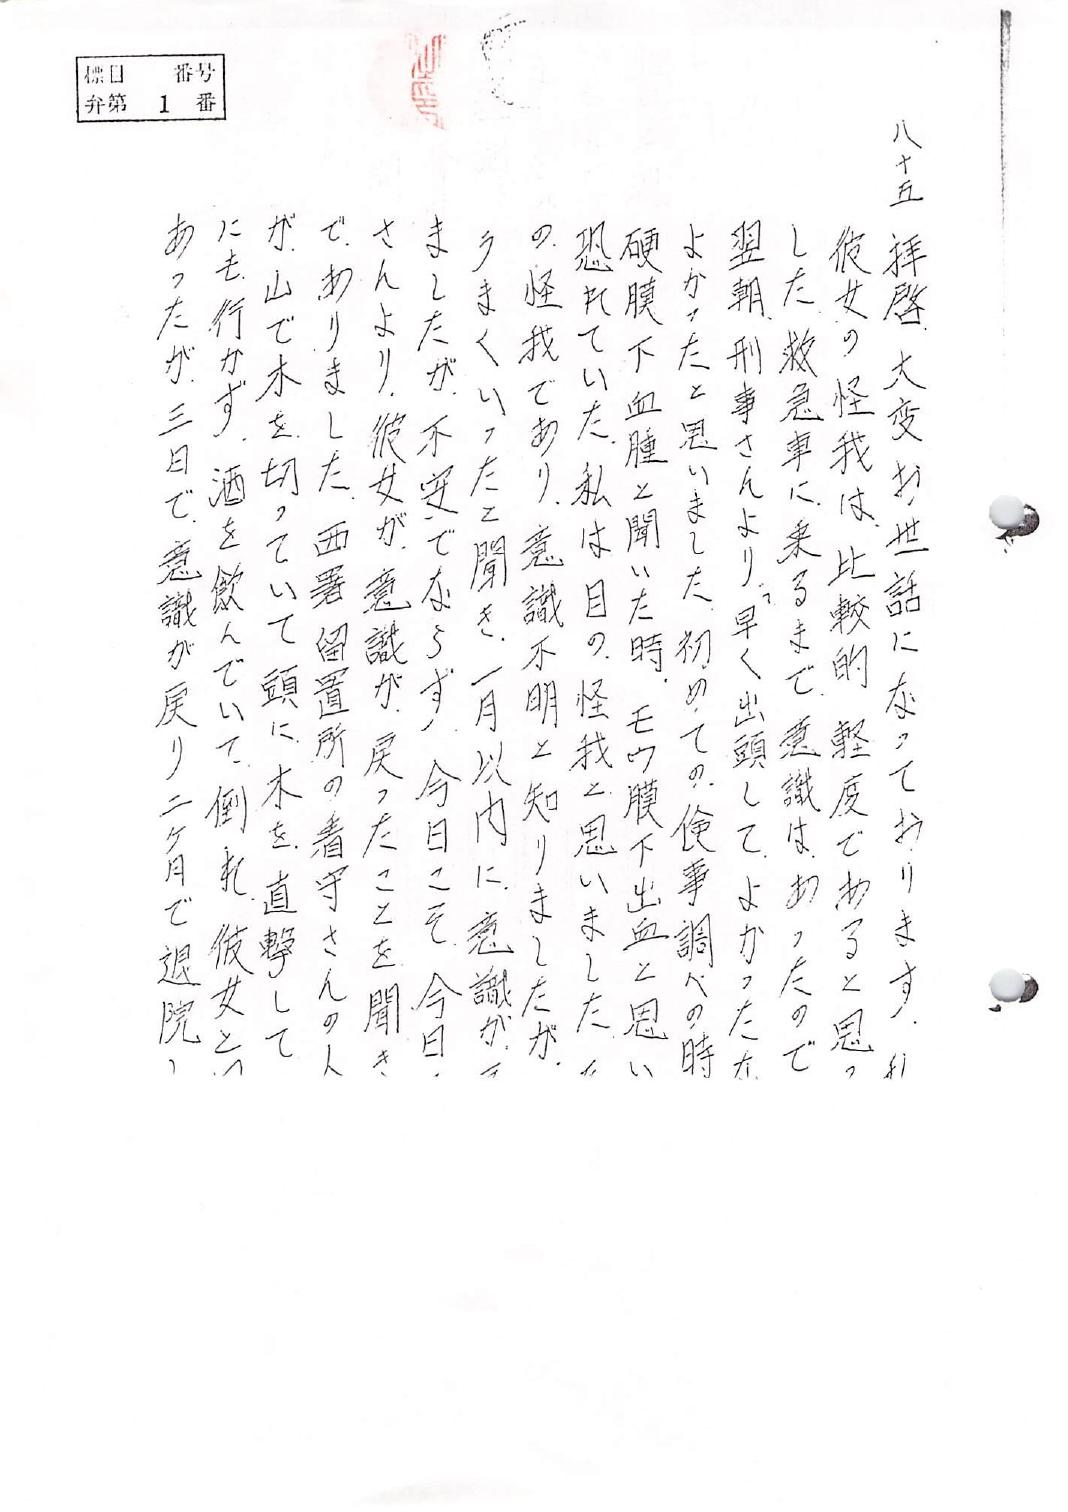 標目 番号
弁第 1 番
八十五
拝啓、大変お世話になっております。
彼女の怪我は、比較的軽度であると思っ
した、救急車に、乗るまで、意識は、あったので
翌朝、刑事さんより、「早く出頭して、よかったな
よかったと思いました、初めての、倹事調べの時
硬膜下血腫と聞いた時、モウ膜下出血と思い
恐れていた、私は目の、怪我と思いました、
の、怪我であり、意識不明と知りましたが、
うまくいったと聞き、一月以内に、意識が、
ましたが、不安でならず、今日こそ、今日、
さんより、彼女が、意識が、戻ったことを、聞き
で、ありました、西署留置所の看守さんの人
が、山で木を、切っていて頭に、木を、直撃して
にも、行かず、酒を飲んでいて、倒れ、彼女と
あったが、三日で、意識が戻り二ヶ月で退院し